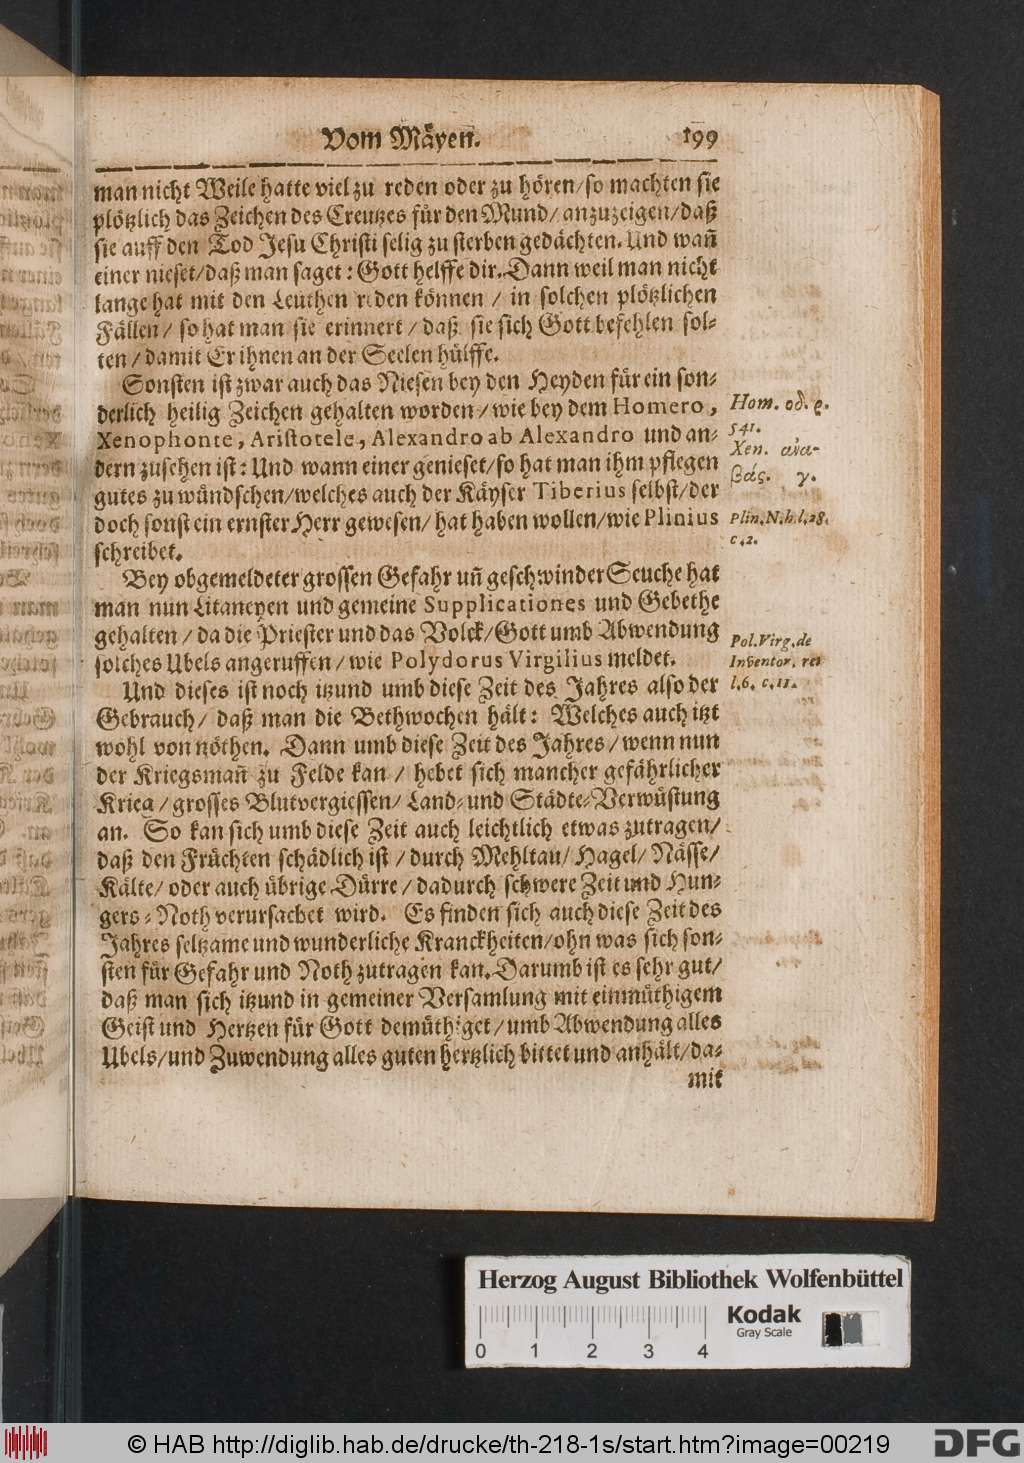 Vom Mäyen. 199
man nicht Weile hatte viel zu reden oder zu hören/ so machten sie
plötzlich das Zeichen des Creutzes für den Mund/ anzuzeigen/ daß
sie auff den Tod Jesu Christi selig zu sterben gedächten. Und wañ
einer nieset/ daß man saget: Gott helffe dir. Dann weil man nicht
lange hat mit den Leuthen reden können / in solchen plötzlichen
Fällen/ so hat man sie erinnert / daß sie sich Gott befehlen sol-
ten / damit Er ihnen an der Seelen hülffe.
Sonsten ist zwar auch das Niesen bey den Heyden für ein son-
derlich heilig Zeichen gehalten worden / wie bey dem Homero,
Xenophonte, Aristotele, Alexandro ab Alexandro und an-
dern zusehen ist: Und wann einer genieset/ so hat man ihm pflegen
gutes zu wündschen/ welches auch der Käyser Tiberius selbst/ der
doch sonst ein ernster Herr gewesen/ hat haben wollen/ wie Plinius
schreibet.
Hom. od. ρ.
541.
Xen. ἀνα-
βάς. γ.
Plin. N. h. l. 28.
c. 2.
Bey obgemeldeter grossen Gefahr uñ geschwinder Seuche hat
man nun Litaneyen und gemeine Supplicationes und Gebethe
gehalten / da die Priester und das Volck/ Gott umb Abwendung
solches Ubels angeruffen / wie Polydorus Virgilius meldet.
Pol. Virg. de
Inventor. rei
l. 6. c. 11.
Und dieses ist noch itzund umb diese Zeit des Jahres also der
Gebrauch/ daß man die Bethwochen hält: Welches auch itzt
wohl von nöthen. Dann umb diese Zeit des Jahres / wenn nun
der Kriegsmañ zu Felde kan / hebet sich mancher gefährlicher
Krieg / grosses Blutvergiessen/ Land- und Städte-Verwüstung
an. So kan sich umb diese Zeit auch leichtlich etwas zutragen/
daß den Früchten schädlich ist / durch Mehltau/ Hagel/ Nässe/
Kälte/ oder auch übrige Dürre / dadurch schwere Zeit und Hun-
gers-Noth verursachet wird. Es finden sich auch diese Zeit des
Jahres seltzame und wunderliche Kranckheiten/ ohn was sich son-
sten für Gefahr und Noth zutragen kan. Darumb ist es sehr gut/
daß man sich itzund in gemeiner Versamlung mit einmüthigem
Geist und Hertzen für Gott demüthiget / umb Abwendung alles
Ubels/ und Zuwendung alles guten hertzlich bittet und anhält/ da-
mit
Herzog August Bibliothek Wolfenbüttel
Kodak
Gray Scale
0 1 2 3 4
© HAB http://diglib.hab.de/drucke/th-218-1s/start.htm?image=00219
DFG